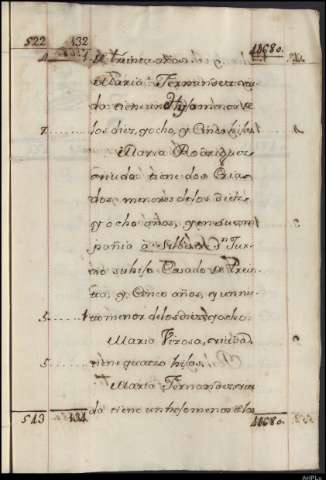 522 132 48680.
de treinta años.
Maria Fernandez viu-
da tiene un Hijo menor de
7 los diez, y ocho, y Cinco hijas
Maria Rodriguez
viuda tiene dos Cria-
dos menores de los diez
y ocho años, y en su com-
pañia a
rio su hijo Casado de trein-
ta, y Cinco años, y un nie-
5 to menor de los diez y ocho.
Maria Perosa, viuda
5 tiene quatro hijas.
Maria Fernandez viu-
da tiene un hijo menor de los
543 134 48680.
AHPLu